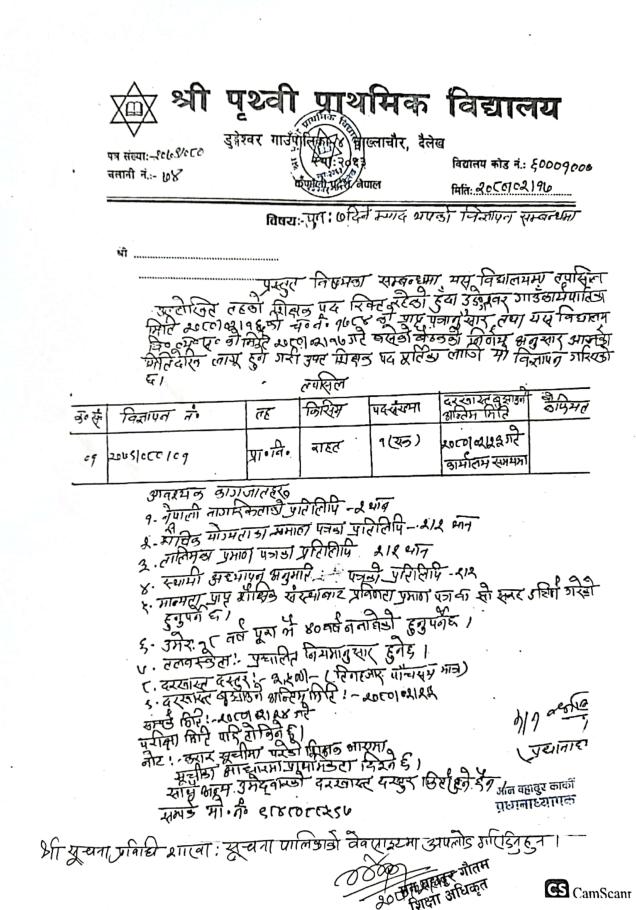 श्री पृथ्वी प्राथमिक विद्यालय
डुङ्गेश्वर गाउँपालिका ४ वाख्लाचौर, दैलेख
पत्र संख्याः-२०७९/०८०
चलानी नं.:- ७४
कर्णाली प्रदेश नेपाल
विद्यालय कोड नं.: ६०००१००७
मितिः २०८०/०२/१७
विषयः- पुनः ७ दिने म्याद थपको विज्ञापन सम्बन्धमा
श्री
प्रस्तुत विषयका सम्बन्धमा यस विद्यालयमा तपसिल
उल्लेखित तहको शिक्षक पद रिक्त रहेको हुँदा डुङ्गेश्वर गाउँकार्यपालिका
मिति २०८०/०२/१६ को च.नं. १७८४ को प्राप्त पत्रानुसार तथा यस विद्यालय
वि.व्य.स. को मिति २०८०/०२/१७ गते बसेको बैठकको निर्णय अनुसार आजको
मितिदेखि लागू हुने गरी उक्त शिक्षक पद पूर्तिका लागि यो विज्ञापन गरिएको
छ।
तपसिल
क्र.सं. विज्ञापन नं. तह किसिम पदसंख्या दरखास्त बुझाउने अन्तिम मिति कैफियत
०१ २०७९/०८०/०१ प्रा.वि. राहत १ (एक) २०८०/०२/२३ गते कार्यालय समयमा
आवश्यक कागजातहरु
१. नेपाली नागरिकताको प्रतिलिपि - २ थान
२. शैक्षिक योग्यताका प्रमाण पत्रको प्रतिलिपि - २/२ थान
३. तालिमका प्रमाण पत्रको प्रतिलिपि २/२ थान
४. स्थायी अध्यापन अनुमति पत्रको प्रतिलिपि - २/२
५. मान्यता प्राप्त शैक्षिक संस्थाबाट प्रविणता प्रमाण पत्र वा सो सरह उत्तीर्ण गरेको
हुनुपर्ने छ।
६. उमेरः १८ वर्ष पूरा भै ४० वर्ष ननाघेको हुनुपर्नेछ।
७. तलवस्केलः प्रचलित नियमानुसार हुनेछ।
८. दरखास्त दस्तुरः- २५००।- (
९. दरखास्त बुझाउने अन्तिम मितिः- २०८०/०२/२३
सम्पर्क मितिः- २०८०/०२/२४ गते
परीक्षा मिति पछि तोकिने छ।
नोटः- करार सूचीमा परेको शिक्षक भएमा
सूचीका आधारमा प्राथमिकता दिइने छ।
साथै उमेदवारको दरखास्त दस्तुर फिर्ता हुने छैन।
सम्पर्क मो. नं. ९८४८०८८२५७
ज्ञान बहादुर कार्की
प्रधानाध्यापक
श्री सूचना प्रविधि शाखाः सूचना पालिकाको वेवसाइटमा अपलोड गरिदिनुहुन।
बहादुर गौतम
शिक्षा अधिकृत
CS CamScanr